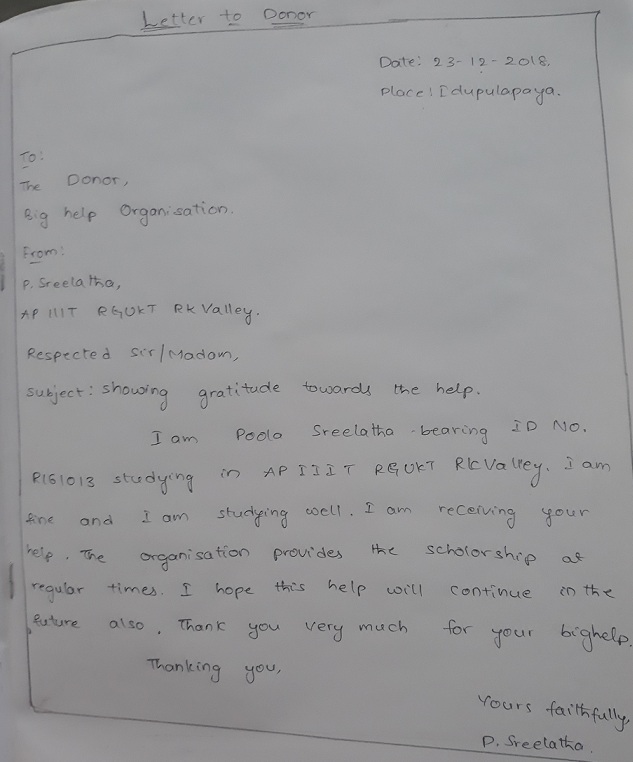 Letter to Donor
Date: 23-12-2018.
Place: Idupulapaya.
To:
The Donor,
Big help Organisation.
From:
P. Sreelatha,
AP IIIT RGUKT RK Valley.
Respected Sir/Madam,
Subject: showing gratitude towards the help.
I am Poola Sreelatha bearing ID No.
R161013 studying in AP IIIT RGUKT RK Valley. I am
fine and I am studying well. I am receiving your
help. The organisation provides the scholorship at
regular times. I hope this help will continue in the
future also. Thank you very much for your bighelp.
Thanking you,
Yours faithfully,
P. Sreelatha.